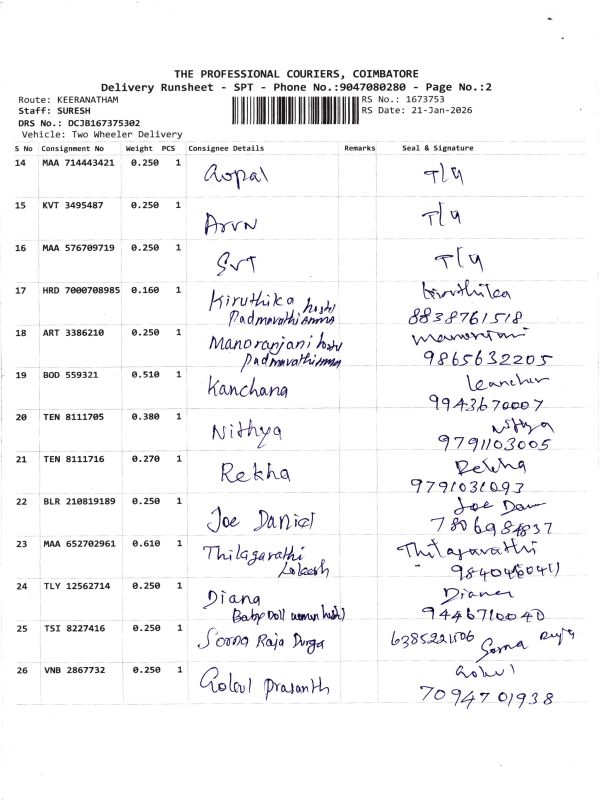 THE PROFESSIONAL COURIERS, COIMBATORE
Delivery Runsheet - SPT - Phone No.:9047080280 - Page No.:2
Route: KEERANATHAM RS No.: 1673753
Staff: SURESH RS Date: 21-Jan-2026
DRS No.: DCJB167375302
Vehicle: Two Wheeler Delivery
S No Consignment No Weight PCS Consignee Details Remarks Seal & Signature
14 MAA 714443421 0.250 1 Gopal T/y
15 KVT 3495487 0.250 1 Arvn T/y
16 MAA 576709719 0.250 1 Svt T/y
17 HRD 7000708985 0.160 1 Kiruthika hostel Kiruthika
Padmavathi Amma 8838761518
18 ART 3386210 0.250 1 Manoranjani hostel
Padmavathi Amma 9865632205
19 BOD 559321 0.510 1 Kanchana
9943670007
20 TEN 8111705 0.380 1 Nithya Nithya
9791103005
21 TEN 8111716 0.270 1 Rekha Rekha
9791031093
22 BLR 210819189 0.250 1 Joe Daniel Joe Dan
7806984837
23 MAA 652702961 0.610 1 Thilagarathi Thilagarathi
Lokesh 9840460411
24 TLY 12562714 0.250 1 Diana Diana
Baby Doll women hostel 9446710040
25 TSI 8227416 0.250 1 Sorna Raja Durga 6385221506 Sorna
26 VNB 2867732 0.250 1 Gokul Prasanth Gokul
7094701938